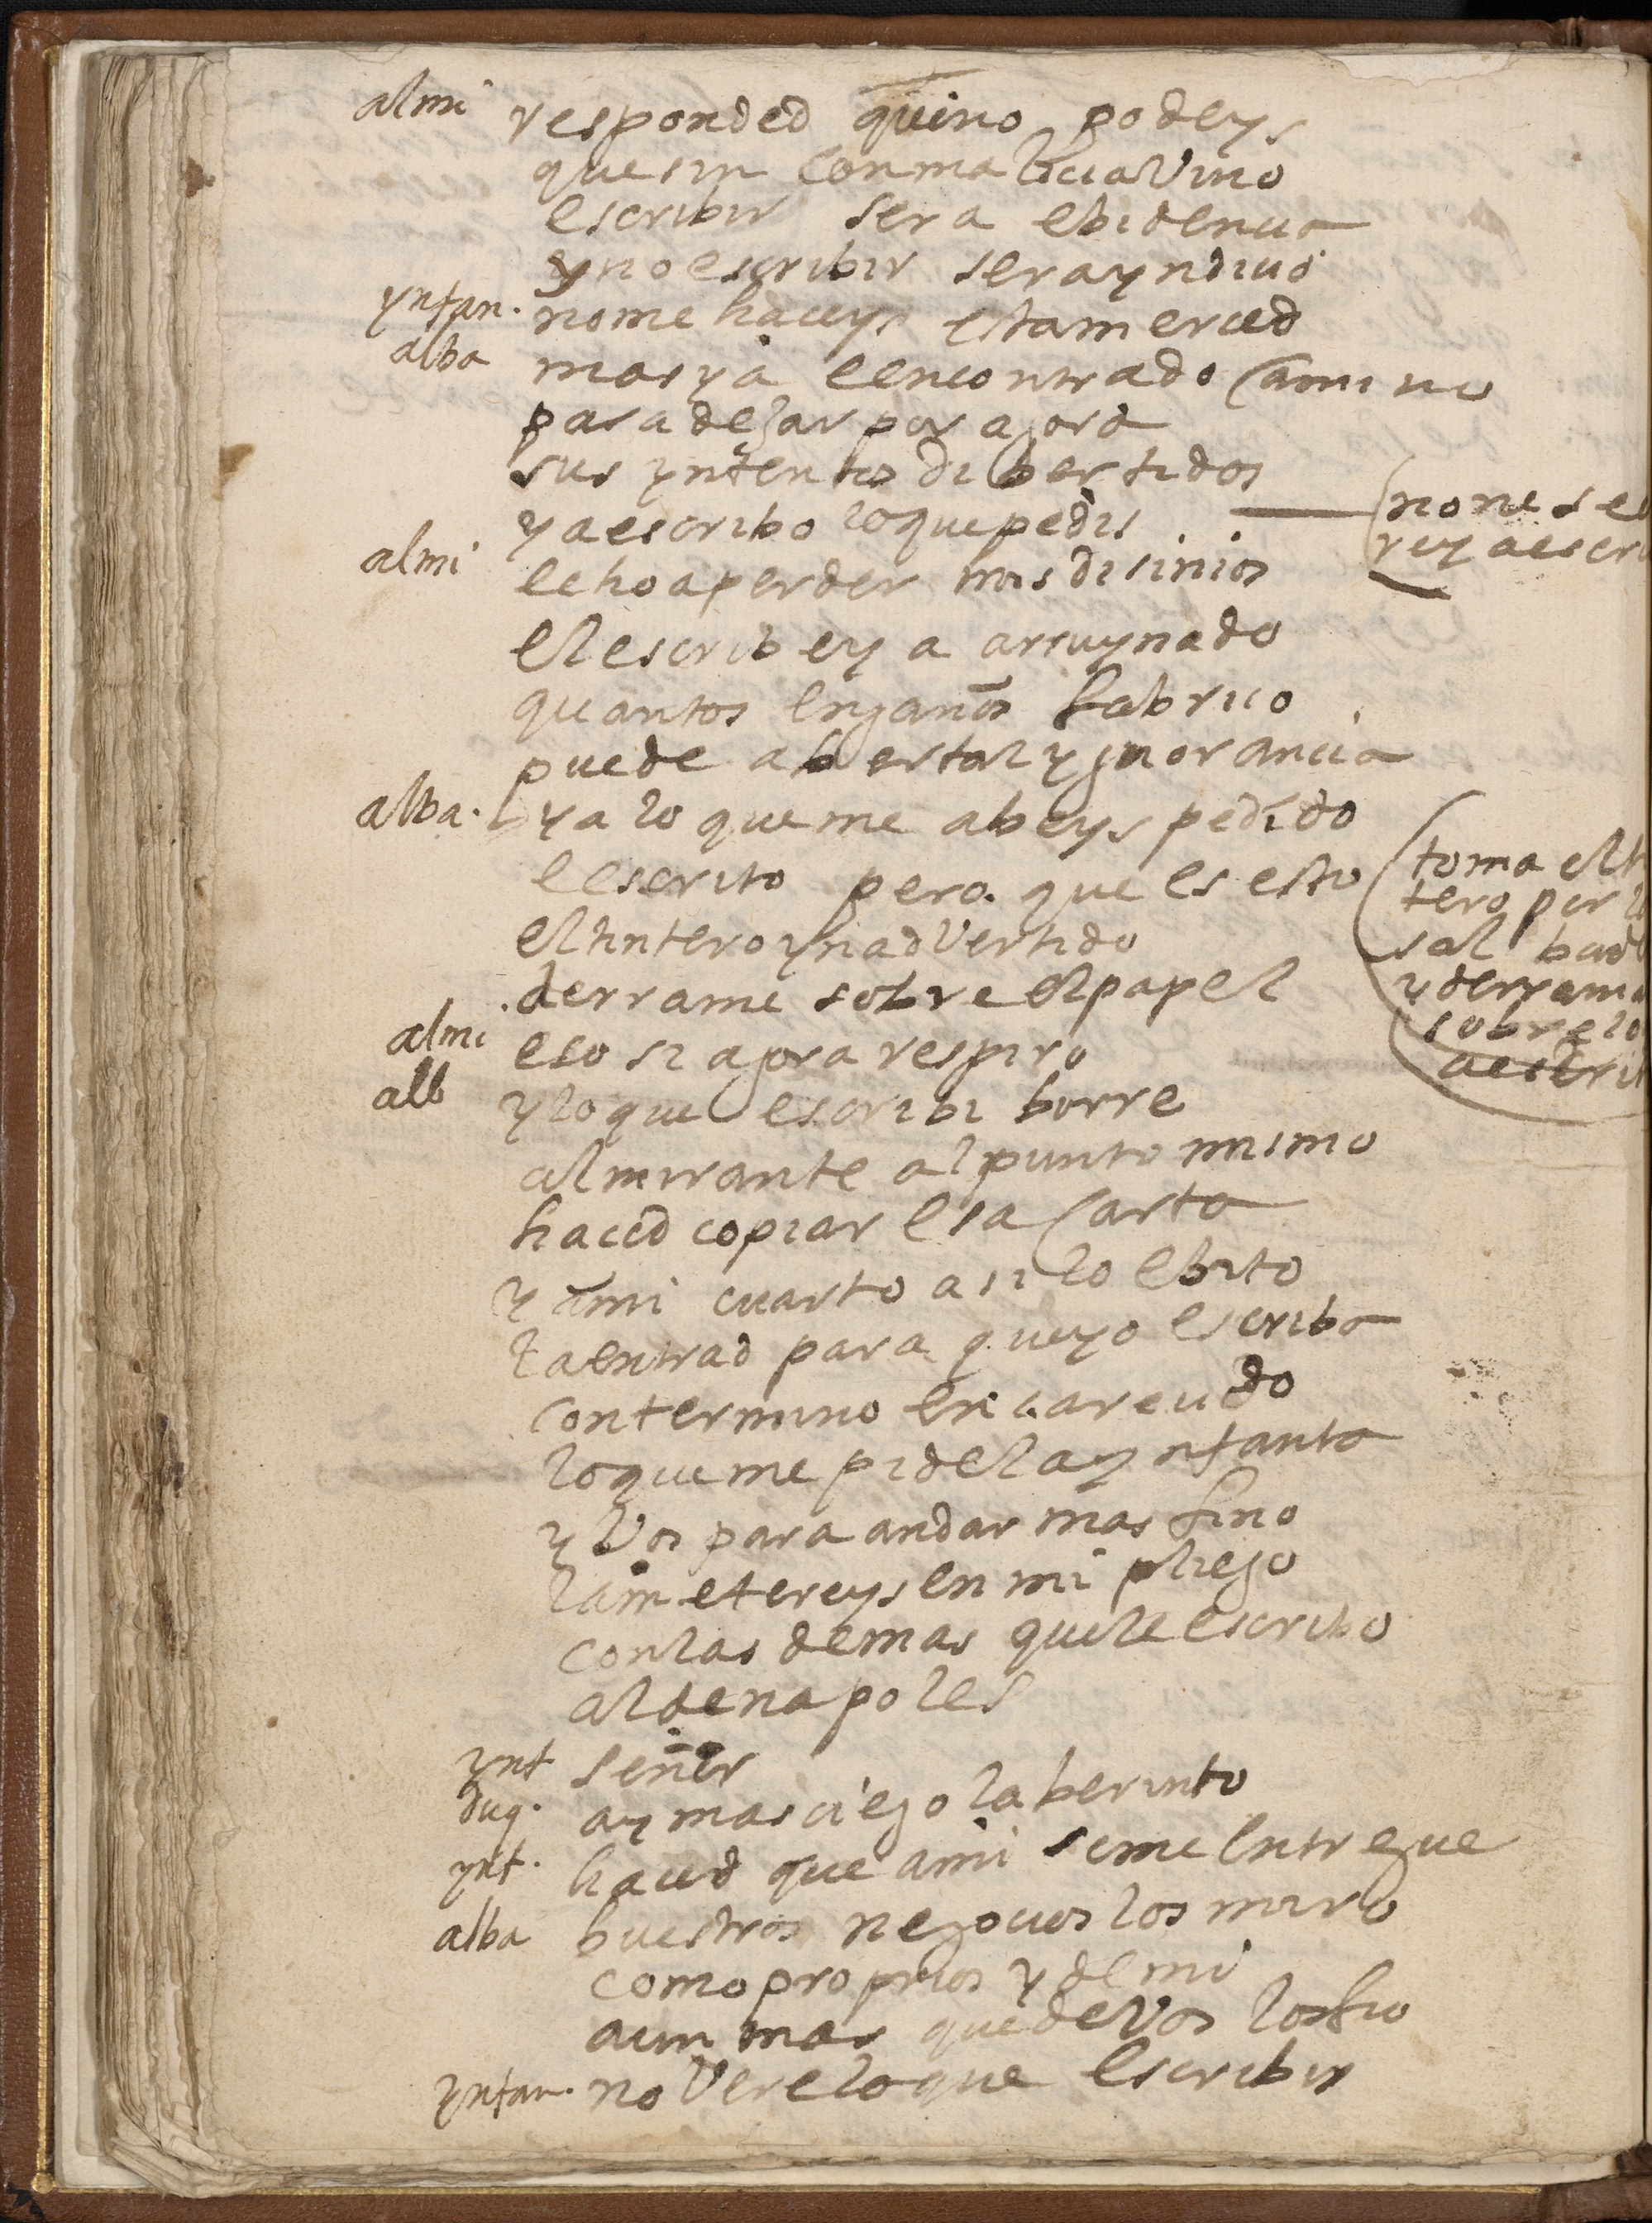 almi responded quino podeys
que si en con malicia vino
escribir sera ebidencia
y no escribir sera yndicio
ynfan. no me haceys esta merced
alba mas ya e encontrado camino
para dejar por agora
sus yntentos dibertidos
ya escribo lo que pedis
(pone se el
rey a escri
almi echo a perder mis disinios
el escribe y a arruynado
quantos enganos fabrico
puede aber tal ygnorancia
alba. ya lo que me abeys pedido
e escrito pero que es esto
el tintero ynadvertido
derrame sobre el papel
(toma el
tero por
sal bad
y derrama
sobre lo
a escri
almi eso si agora respiro
alb y lo que escribi borre
almirante al punto mismo
haced copiar esa carta
y a mi cuarto asi lo ebito
la entrad para que yo escriba
con termino encarecido
lo que me pide la ynfanta
y vos para andar mas fino
la metereys en mi pliego
con las demas que le escribo
al de napoles
ynf señor
duq. ay mas ciego laberinto
ynf. haced que a mi se me entregue
alba buestros negocios los miro
como proprios y de mi
aun mas que de vos los fio
ynfan. no vere lo que escribis